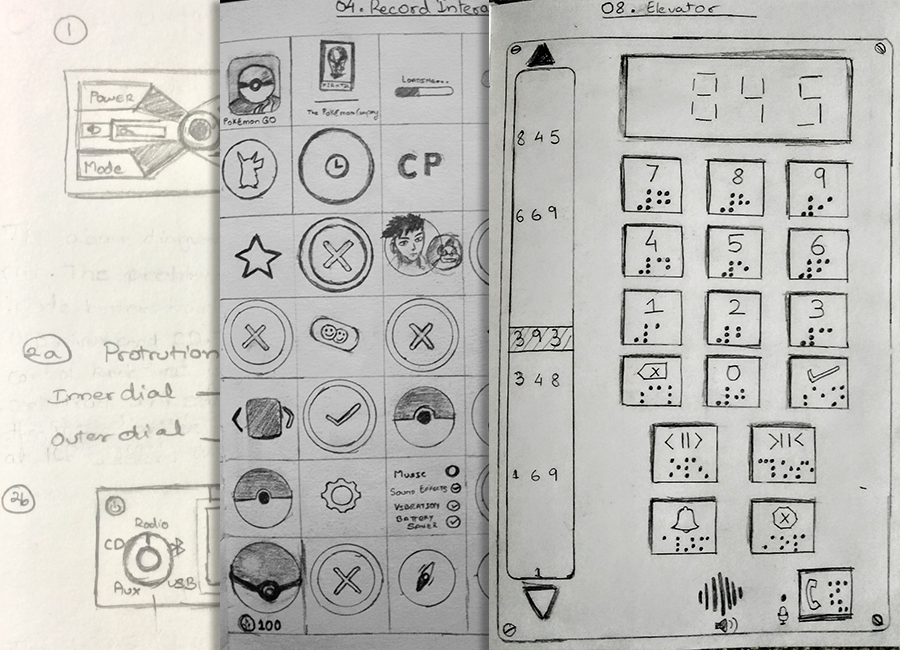 1
POWER
Mode
2a
Protrution
Inner dial
Outer dial
2b
Radio
CD
Aux
USB
04. Record Intera
PokEmon GO
The PokEmon Company
LOADING...
CP
Music
Sound Effects
VIBRATION
BATTERY
SAVER
100
08. Elevator
845
669
393
348
169
1
845
7 8 9
4 5 6
1 2 3
X 0